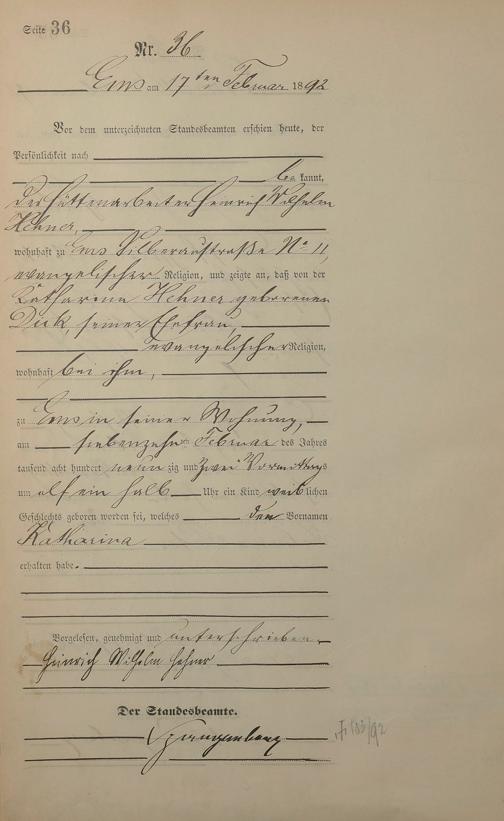 Seite 36
Nr. 36
Ems am 17ten Februar 1892
Vor dem unterzeichneten Standesbeamten erschien heute, der
Persönlichkeit nach
be kannt,
der Hüttenarbeiter Heinrich Wilhelm
Hehner,
wohnhaft zu Ems Silberaustraße No 11,
evangelischer Religion, und zeigte an, daß von der
Katharina Hehner geborenen
Dick, seiner Ehefrau,
evangelischer Religion,
wohnhaft bei ihm,
zu Ems in seiner Wohnung,
am siebenzehn Februar des Jahres
tausend acht hundert neun zig und zwei Vormittags
um elf ein halb Uhr ein Kind weib lichen
Geschlechts geboren worden sei, welches den Vornamen
Katharina
erhalten habe.
Vorgelesen, genehmigt und unterschrieben
Heinrich Wilhelm Hehner
Der Standesbeamte.
Spangenberg